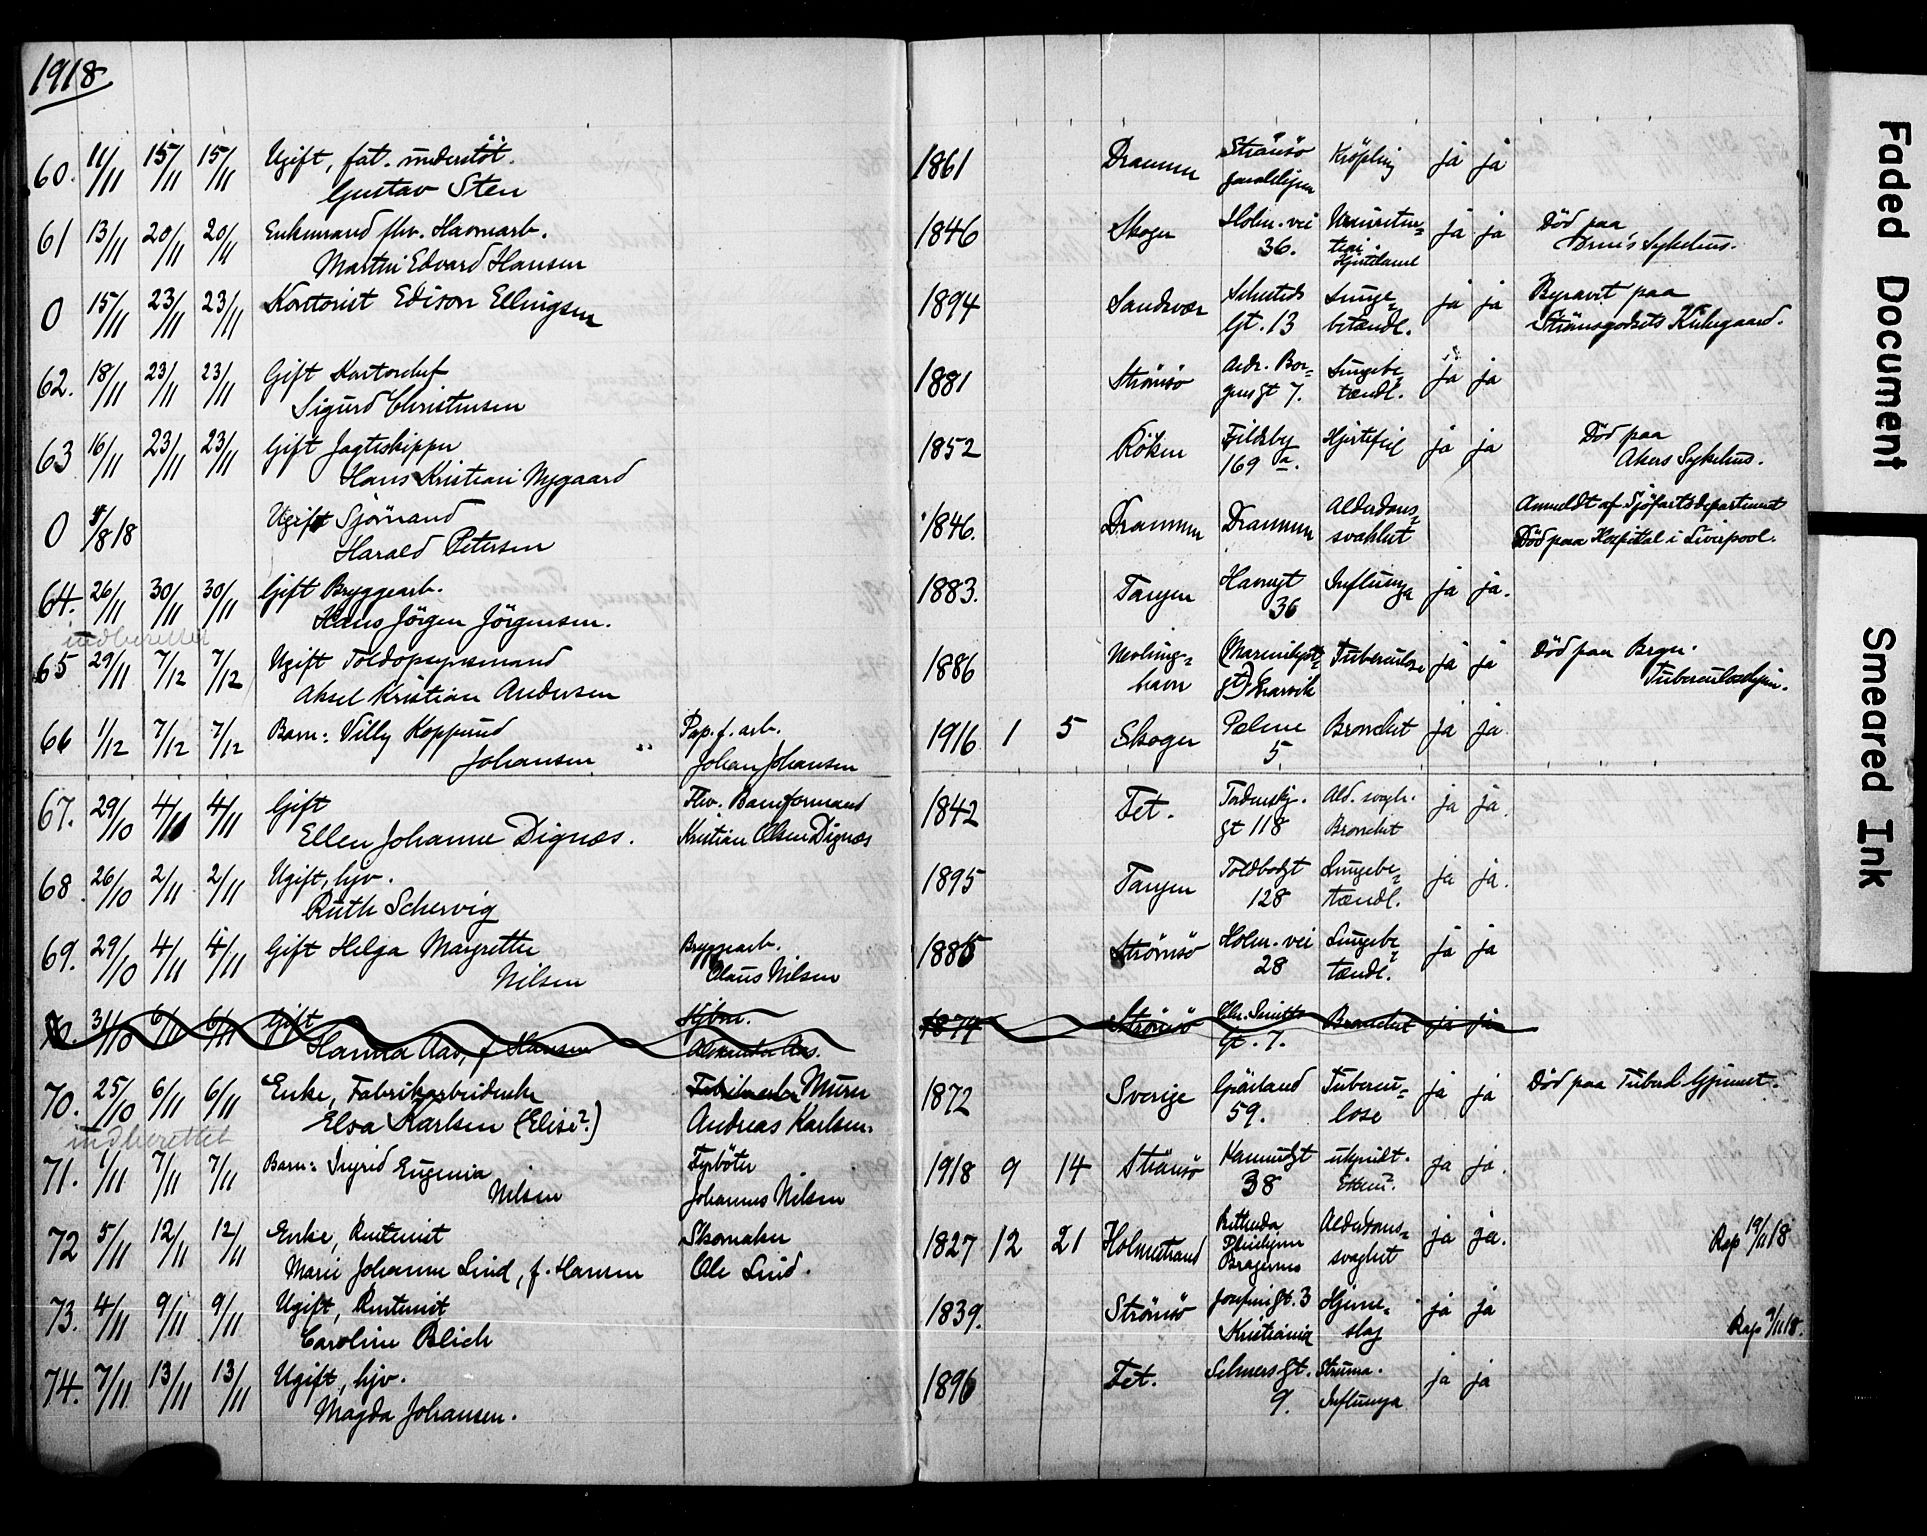 1918
60. 11/11 15/11 15/11 Ugift, fat. understöt. 1861 Drammen Strömsö Kröpling ja ja
Gustav Sten
61 13/11 20/11 20/11 Enkemand fhv. Havnearb. 1846 Skoger Holm. vei ja ja Död paa
Martin Edvard Hansen 36. Sykehus.
0 15/11 23/11 23/11 Kontorist Edison Ellingsen 1894 Sandsvær Lunge= ja ja paa
Gt. 13 betændl. Strömsgodsets Kirkegaard.
62. 18/11 23/11 23/11 Gift Kontorchef 1881 Strömsö Lungebe= ja ja
Sigurd Christensen gt 7. tændl.
63 16/11 23/11 23/11 Gift Jagtskipper 1852 Röken Hjertefeil ja ja Död paa
Hans Kristian Nygaard 169 a. Akers Sykehus.
0 /8 18 Ugift Sjömand 1846. Drammen Drammen Alderdoms= Anmeldt af Sjöfartsdepartement
Harald Petersen svakhet Död paa Hospital i Liverpool.
64. 26/11 30/11 30/11 Gift Bryggearb. 1883. Tangen Havnegt Influenza ja ja.
Hans Jörgen Jörgensen. 36
indberettet
65 29/11 7/12 7/12 Ugift Toldopsynsmand 1886 Tuberculose ja ja Död paa Brgn.
Aksel Kristian Andersen havn gt) Tuberculosehjem.
66 1/12 7/12 7/12 Barn: Villy Koppund Pap. f. arb. 1916 1 5 Skoger Bronchit ja ja
Johansen " Johan Johansen 5.
67. 29/10 4/11 4/11 Gift Fhv. Banformand 1842 Fet. Tordenskj. Ald. svagh. ja ja.
Ellen Johanne Dignæs. Kristian Olsen Dignæs gt 118 Bronchit
68. 26/10 2/11 2/11 Ugift, hjv. 1895 Tangen Toldbodgt Lungebe= ja ja.
Ruth Schervig 128 tændl.
69. 29/10 4/11 4/11 Gift Helga Margrethe Bryggearb. 1885 Strömsö Holm. vei Lungebe= ja ja
Nilsen Claus Nilsen 28 tændl.
70. 31/10 6/11 6/11 Gift 1874 Strömsö Chr. Smiths Bronchit ja ja
Hanna Aas, f Hansen Alexander Aas. Gt. 7.
70. 25/10 6/11 6/11 Enke, Fabrikarbeiderske Fabrikarb Murer 1872 Sverige Grönland Tubercu= ja ja Död paa Tuberl Hjemmet.
Elsa Karlsen (Elise?) Andreas Karlsen. 59. lose
indberettet
71. 1/11 7/11 7/11 Barn: Ingrid Eugenia Fyrböter 1918 9 14 Strömsö ukjendt. ja ja.
Nilsen Johannes Nilsen 38
72 5/11 12/11 12/11 Enke, Rentenist Skomaker 1827 12 21 Holmestrand Alderdoms= ja ja. Rap 19/11 18
Marie Johanne Lind, f. Hansen Ole Lind. Pleiehjem Bragernes svaghet
73. 4/11 9/11 9/11 Ugift, Rentenist 1839. Strömsö Josefinegt. 3 Hjerne= ja ja
Caroline Blich Kristiania slag Rap 9/11 18.
74. 7/11 13/11 13/11 Ugift, hjv. 1896 Fet. Selmersgt. Struma. ja ja
Magda Johansen. 9. Influenza
Faded Document
Smeared Ink